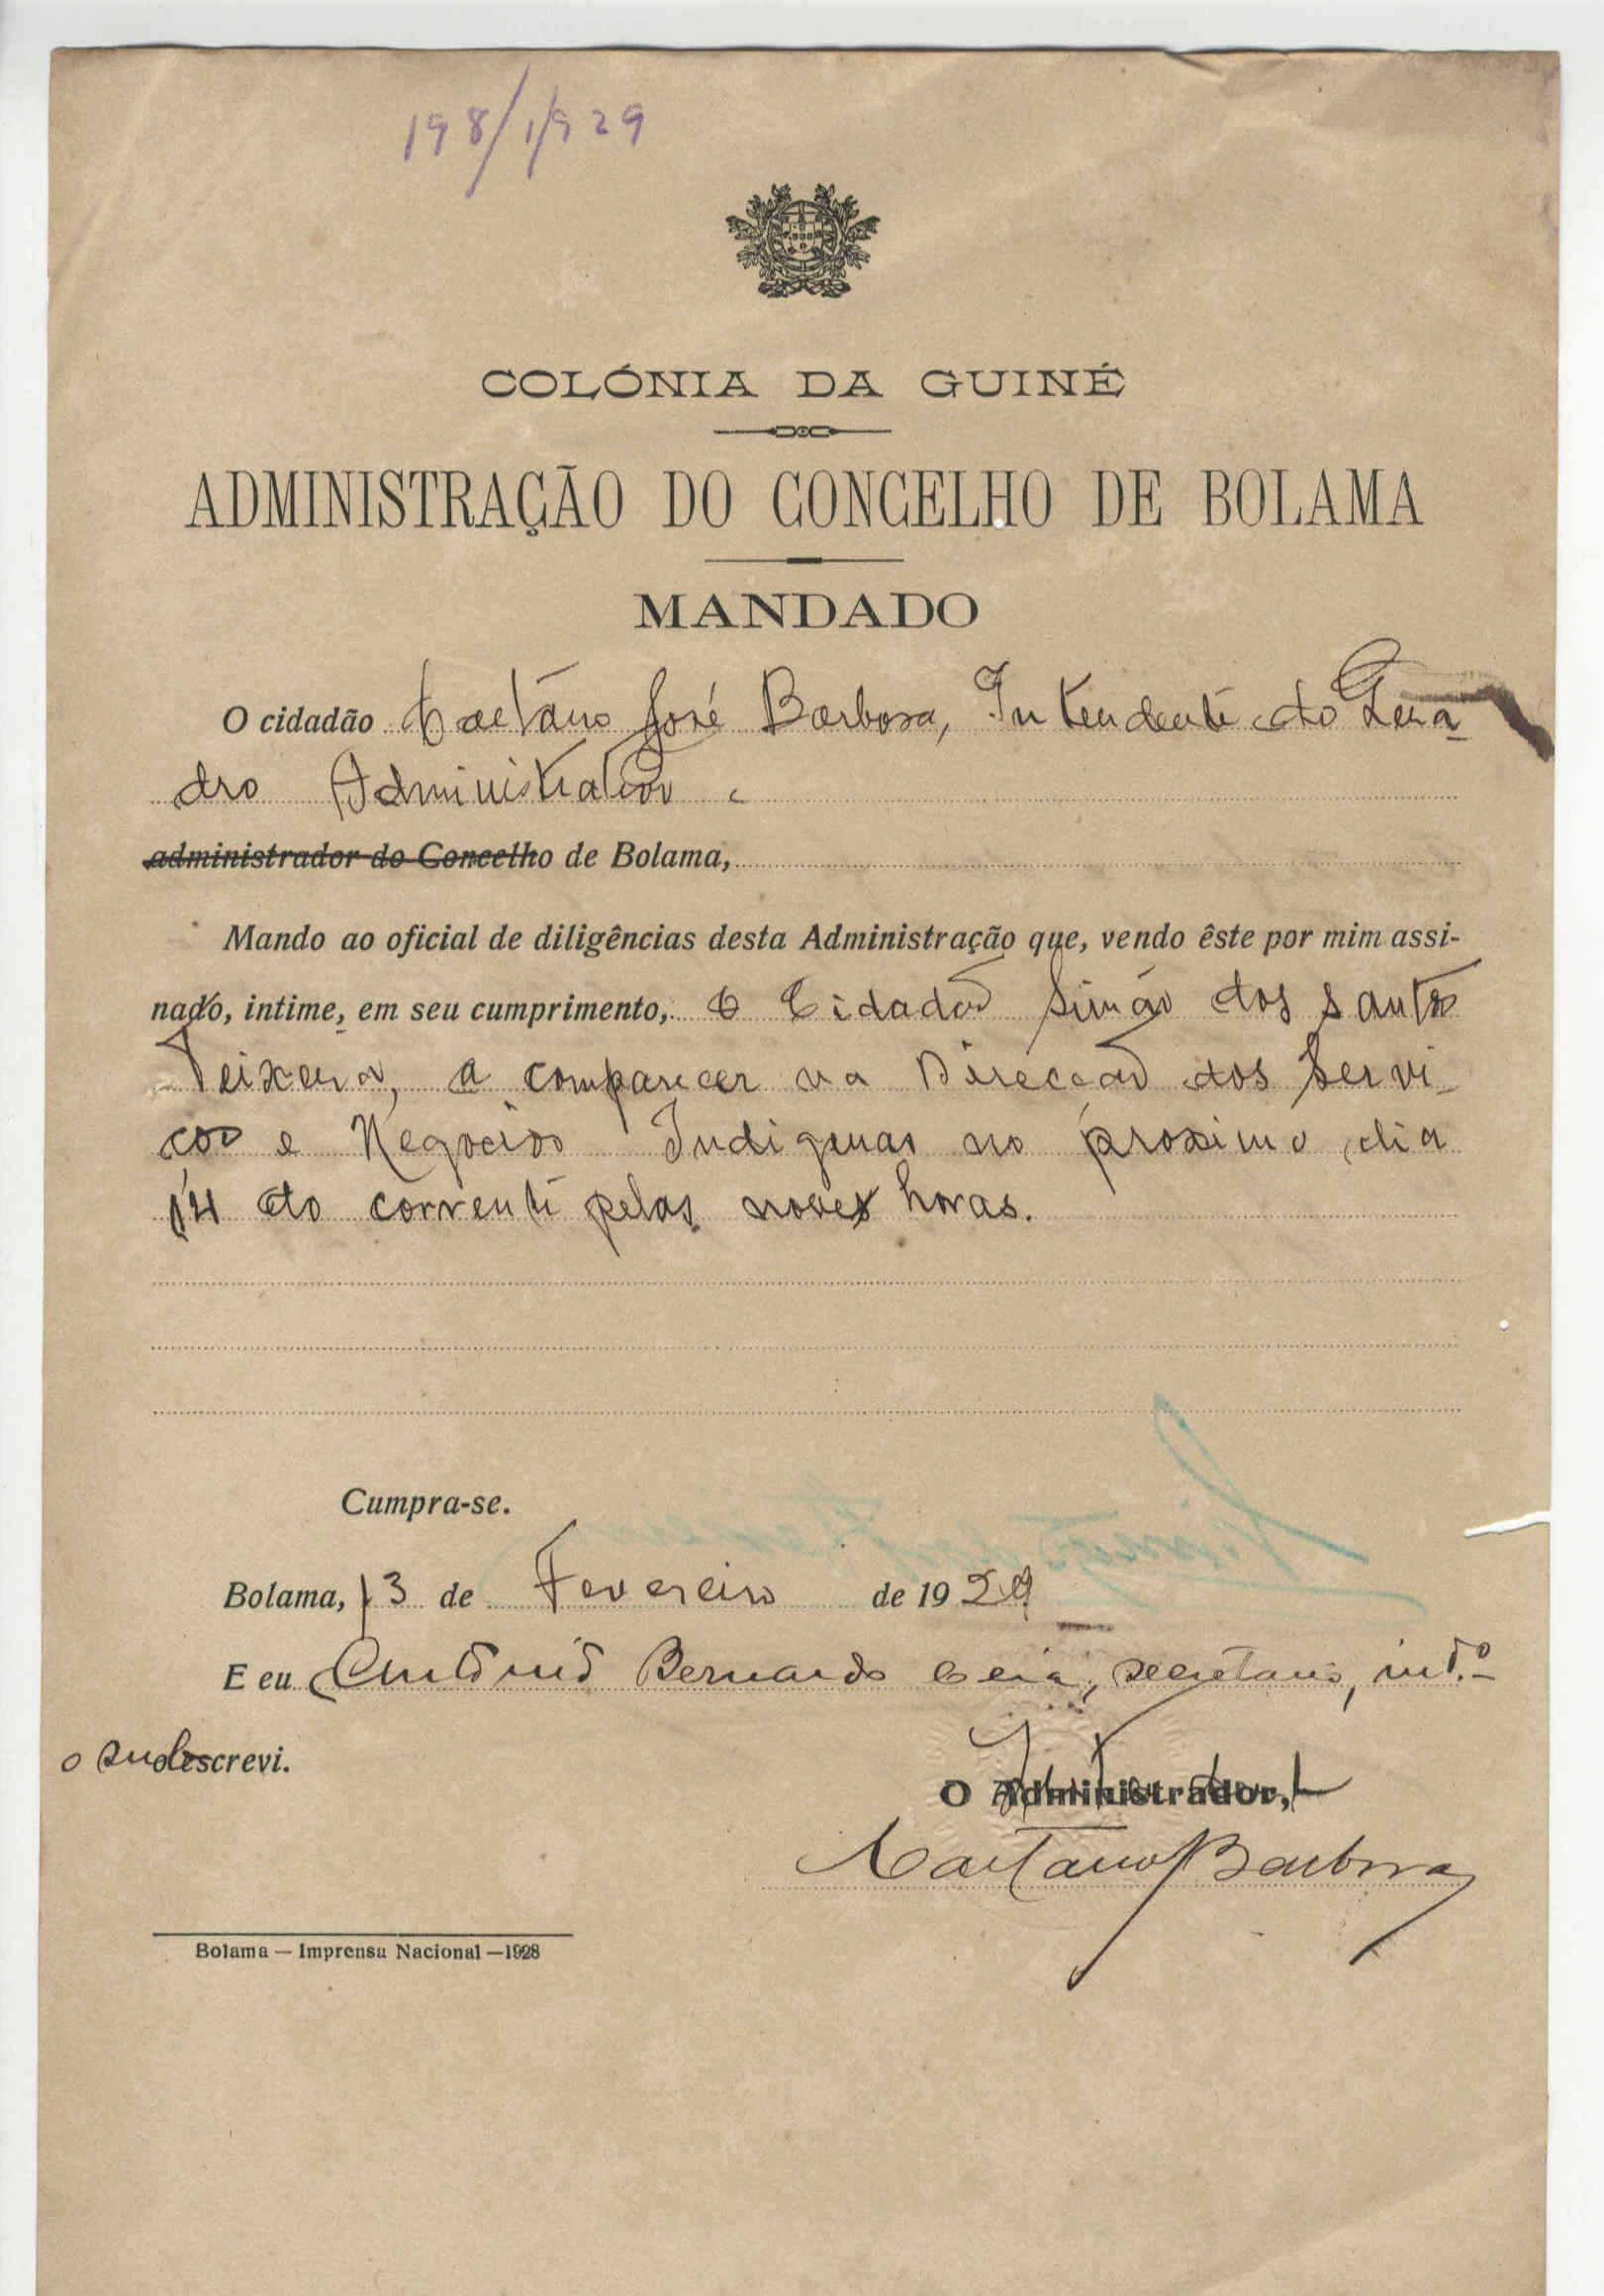 198/1/929
COLÓNIA DA GUINÉ
ADMINISTRAÇÃO DO CONCELHO DE BOLAMA
MANDADO
O cidadão Caetano José Barbosa, Intendente do Qua-
dro Administrativo
administrador do Concelho de Bolama,
Mando ao oficial de diligências desta Administração que, vendo êste por mim assi-
nado, intime, em seu cumprimento, o Cidadão Simão dos Santos
Teixeira, a comparecer na Direcção dos Servi-
ços e Negocios Indigenas no proximo dia
14 do corrente pelas nove horas.
Cumpra-se.
Bolama, 13 de Fevereiro de 1929
E eu António Bernardo secretario, int.º
o subscrevi.
O Administrador,
Caetano Barbosa
Bolama — Imprensa Nacional — 1928